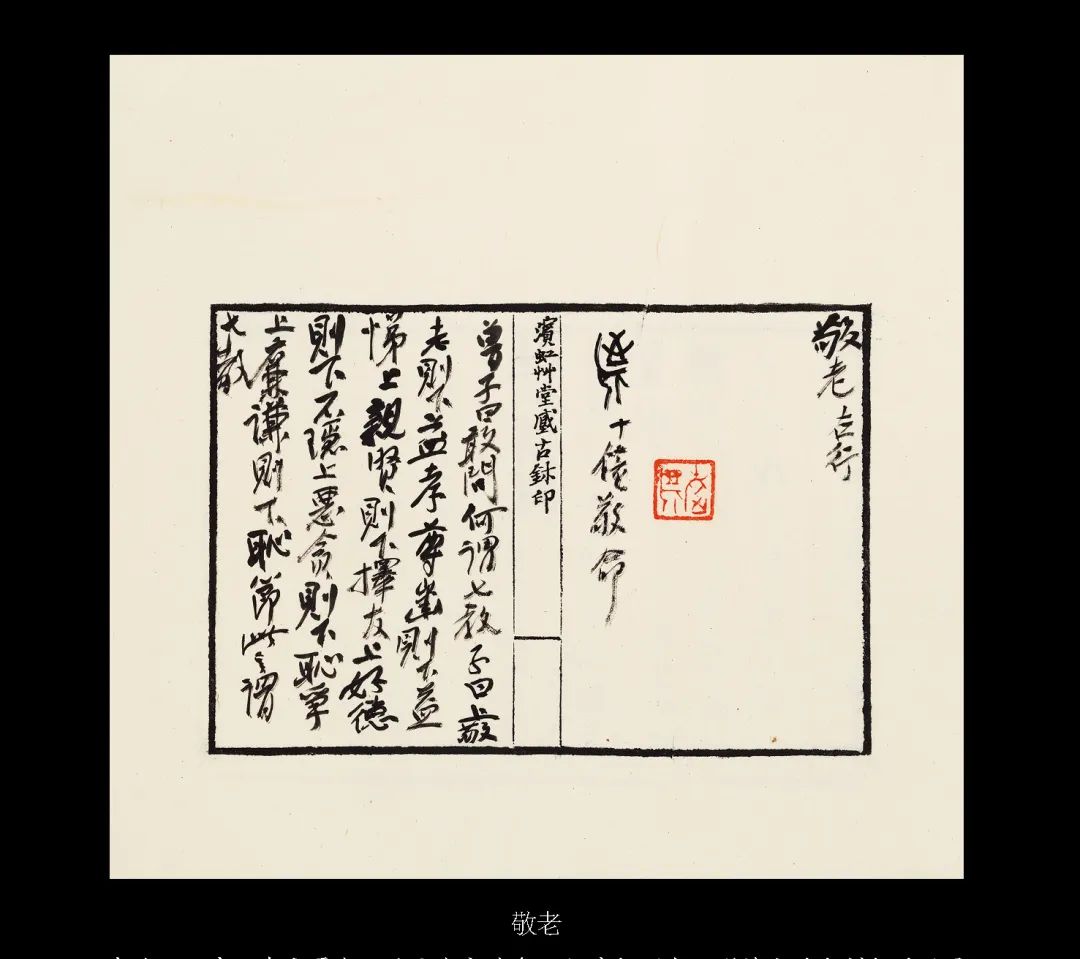 敬老 吉行
十 敬命
濱虹艸堂臧古鉥印
曾子曰敢問何謂七教子曰上敬
老則下益孝上尊齒則下益
悌上親賢則下擇友上好德
則下不隱上惡貪則下恥爭
上廉讓則下恥節此之謂
七教
敬老